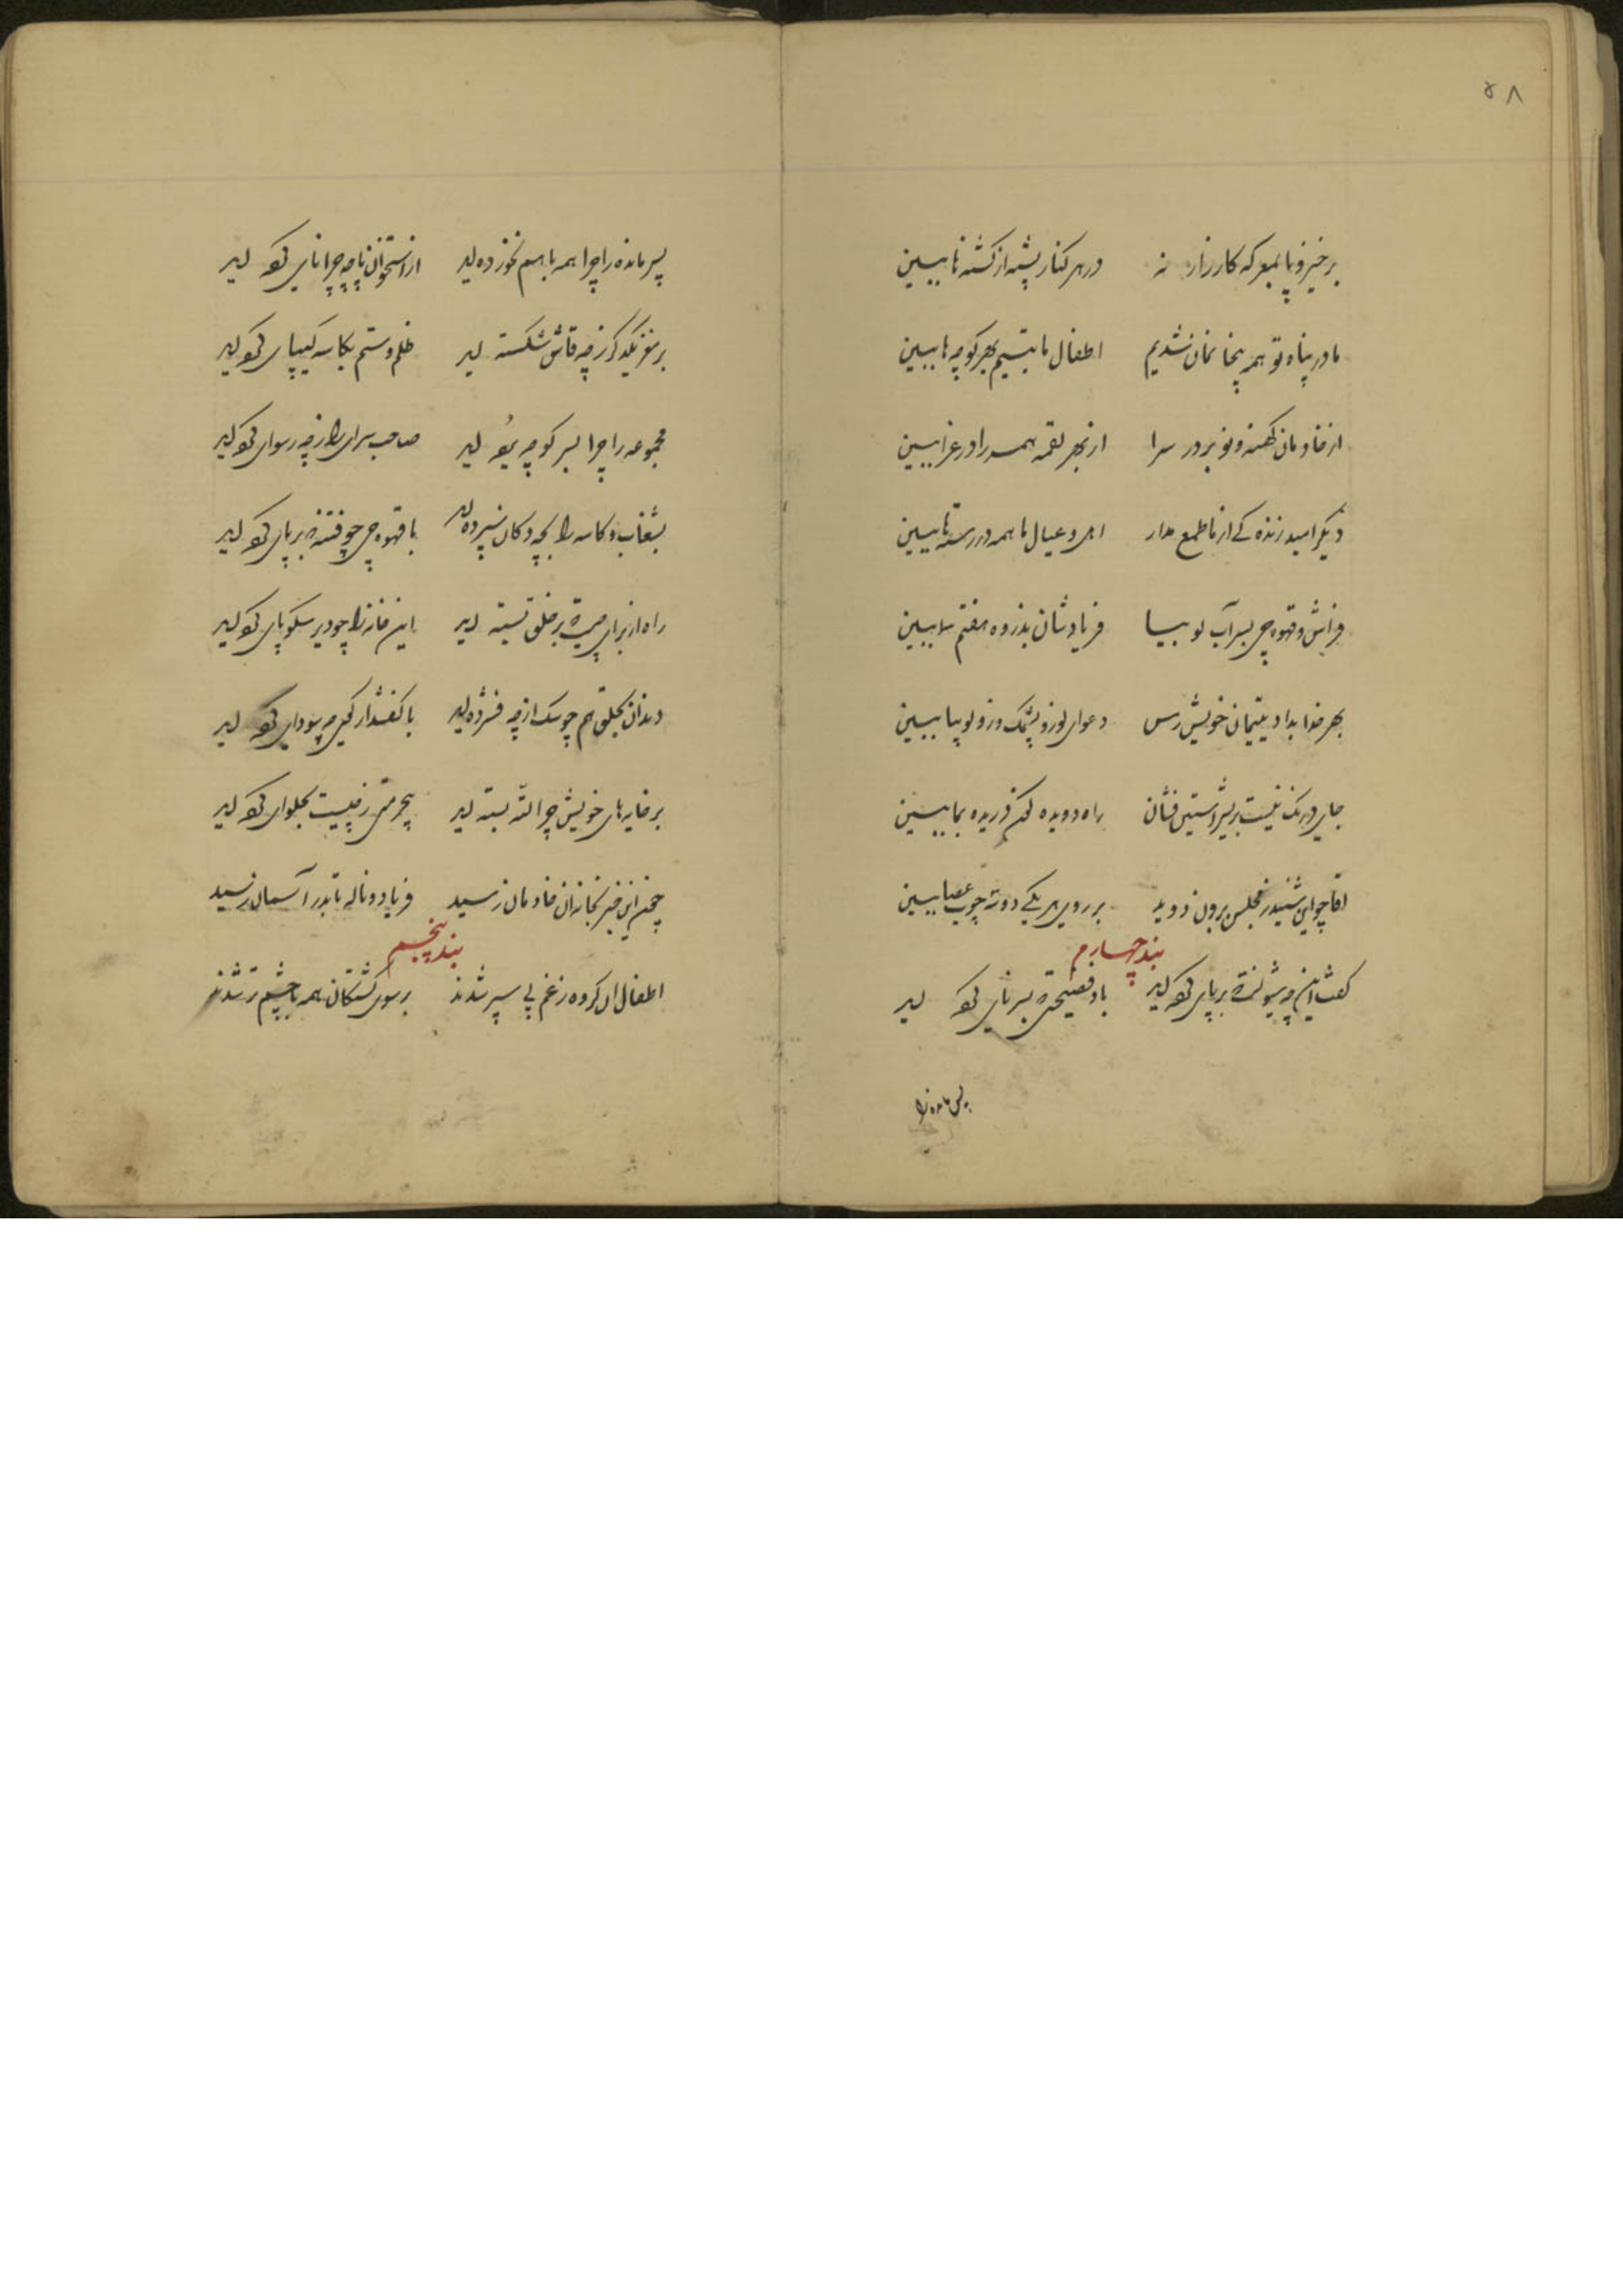 ۵۸
برخیز و پا بمعرکه کارزار نه در هر کنار پشته از کشته‌ها ببین
ما در پناه تو همه بیخانمان شدیم اطفال ما یتیم بهر کوچه‌ها ببین
از خادمان کهنه و نو بر در سرا از بهر لقمه همه را در عزا ببین
دیگر امید زنده کی از ما طمع مدار اهل و عیال ما همه در رسته‌ها ببین
فراش و قهوه چی بسر آب لو بیا فریادشان بذروه هفتم سما ببین
بهر خدا بداد یتیمان خویش رس دعوای لوز و پشمک و زولوبیا ببین
جای درنک نیست بریش آستین فشان راه دویده دریده بما ببین
اقا چو این شنید ز مجلس برون دوید بر روی هر یکی دو سه چوب عصا ببین
بند چهارم
گفت این چه شیونست بر پای کرده‌اید باد فضیحتی بسر نای کرده‌اید
پس مانده را
پس مانده را چرا همه با هم نخورده‌اید از استخوان پاچه چرا نای کرده‌اید
بر مغز یکدگر ز چه قاشق شکسته‌اید ظلم و ستم بکاسه کیپای کرده‌اید
مجموعه را چرا بسر کوچه برده‌اید صاحب سرای را ز چه رسوای کرده‌اید
بشقاب و کاسه را بچه دکان سپرده‌اید با قهوه چی چو فتنه بر پای کرده‌اید
راه از برای چیست بر خلق بسته‌اید این خانه را چو دیر سکوپای کرده‌اید
دندان بحلق هم چو سک از چه فشرده‌اید با کفشدار کی چه سودای کرده‌اید
بر خایه‌های خویش چرا لته بسته‌اید بیحرمتی ز چیست بحلوای کرده‌اید
چون این خبر بخانه آن خادمان رسید فریاد و ناله تا بدر آسمان رسید
بند پنجم
اطفال آن کروه ز غم بی سپر شدند بر سوی کشتکان همه با چشم تر شدند